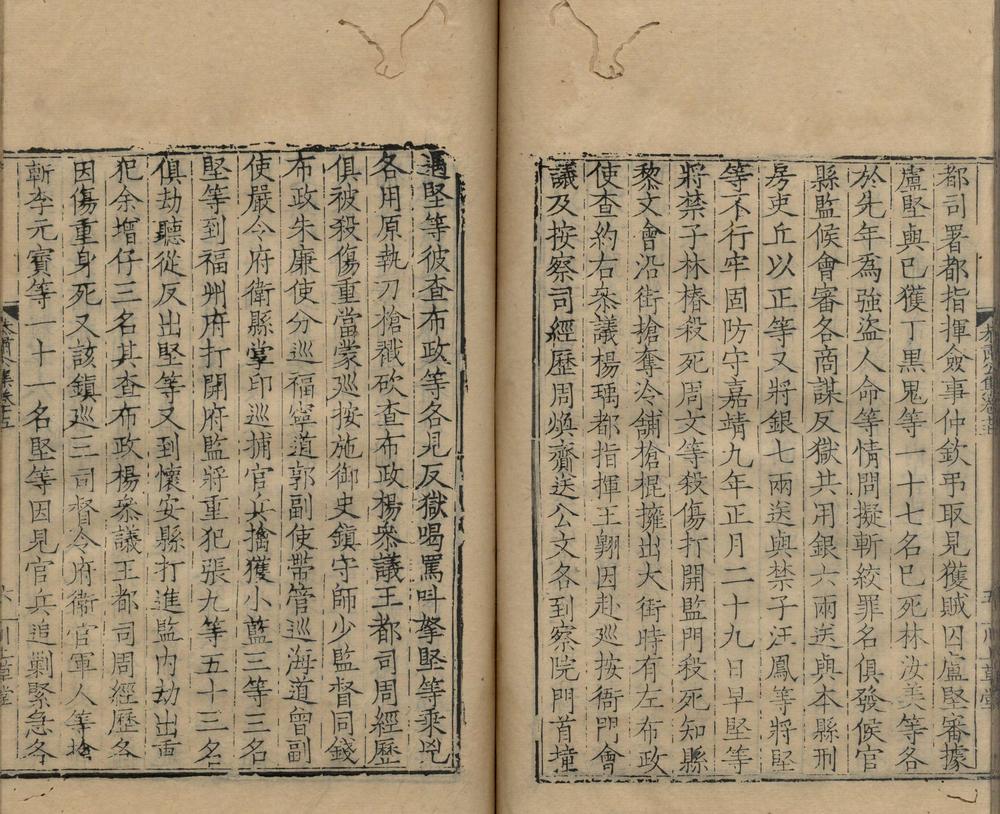 都司署都指揮僉事仲欽弔取見獲賊囚盧堅審據
盧堅與已獲丁黑鬼等一十七名已死林汝美等各
於先年爲強盜人命等情問擬斬絞罪名俱發候官
縣監候會審各商謀反獄共用銀六兩送與本縣刑
房吏丘以正等又將銀七兩送與禁子汪鳳等將堅
等不行牢固防守嘉靖九年正月二十九日早堅等
將禁子林椿殺死周文等殺傷打開監門殺死知縣
黎文會沿街搶奪冷舖槍棍擁出大街時有左布政
使查約右叅議楊瑀都指揮王翺因赴廵按衙門會
議及按察司經歷周煥齎送公文各到察院門首撞
遇堅等彼查布政等各見反獄喝罵呌拏堅等乘兇
各用原執刀槍戳砍查布政楊叅議王都司周經歷
俱被殺傷重當蒙廵按施御史鎮守師少監督同錢
布政朱廉使分巡福寧道郭副使帶管巡海道曾副
使嚴令府衛縣掌印巡捕官兵擒獲小藍三等三名
堅等到福州府打開府監將重犯張九等五十三名
俱劫聽從反出堅等又到懷安縣打進監内劫出重
犯余增仔三名其查布政楊叅議王都司周經歷各
因傷重身死又該鎮巡三司督令府衛官軍人等擒
斬李元寶等一十一名堅等因見官兵追剿緊急各